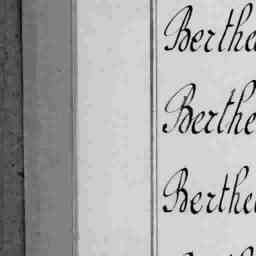 Bertha
Berthe
Berthe